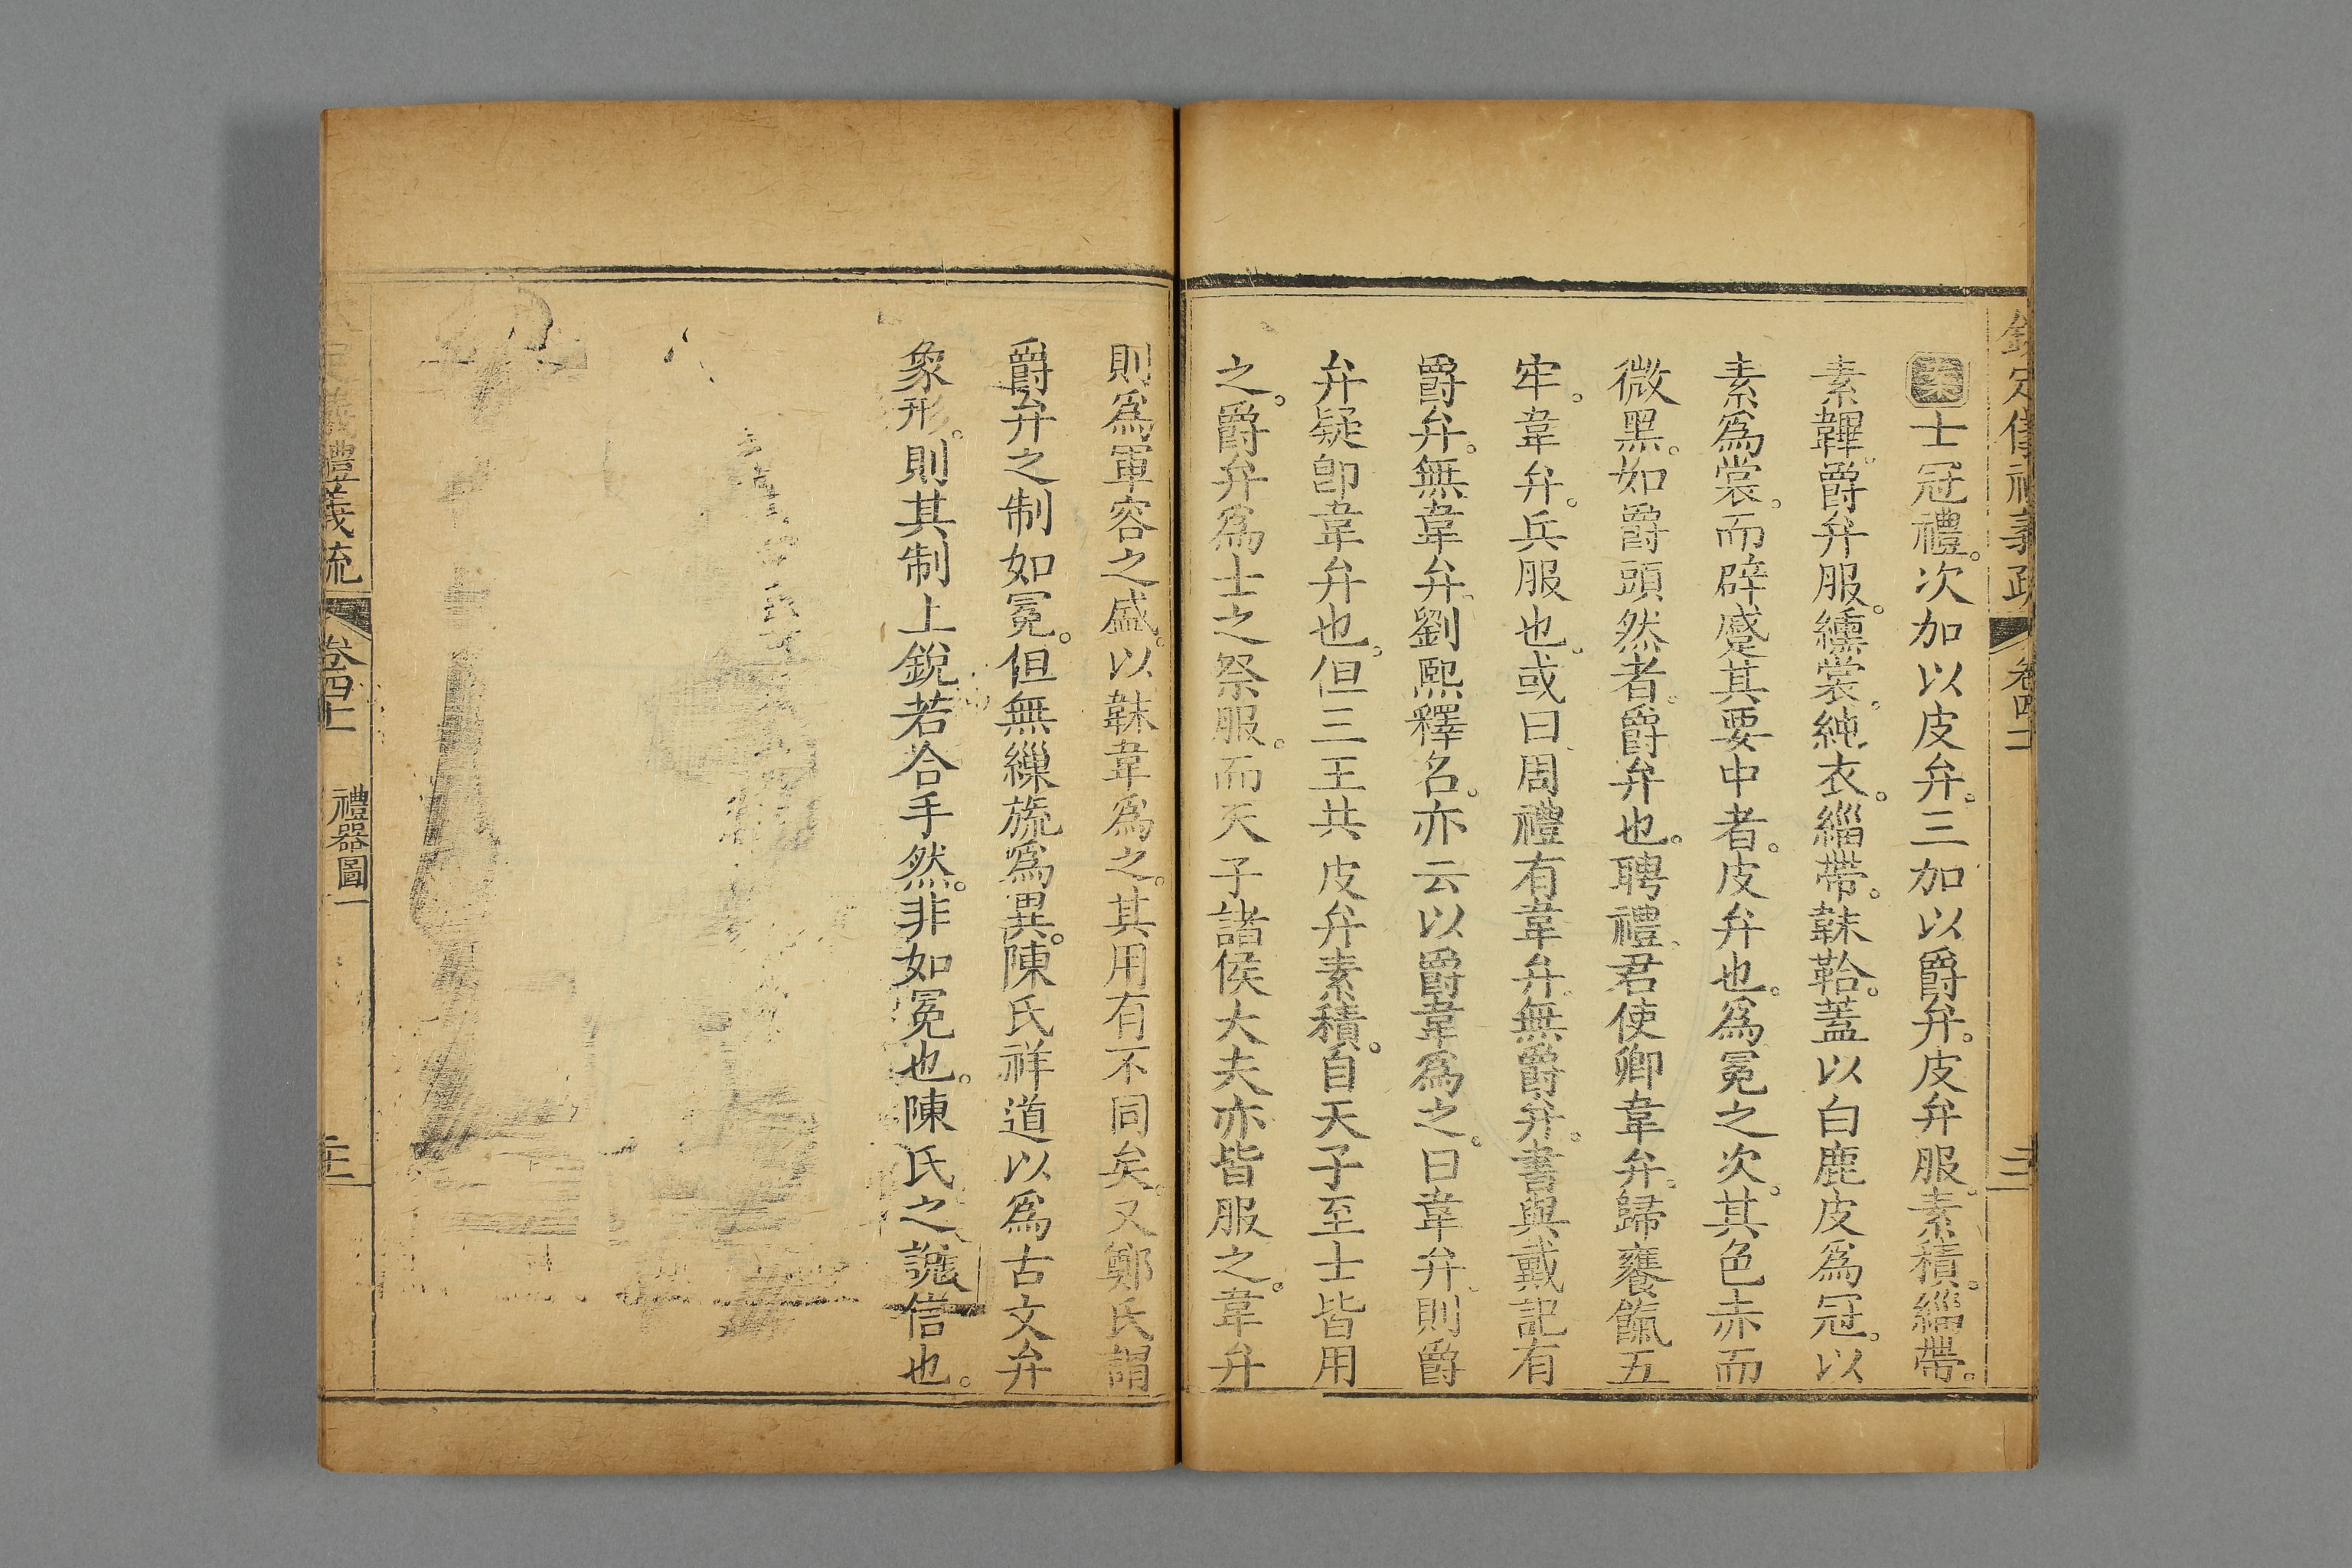 欽定儀禮義疏 卷四十二
案士冠禮。次加以皮弁。三加以爵弁。皮弁服。素積。緇帶。
素韠。爵弁服。纁裳。純衣。緇帶。韎韐。蓋以白鹿皮爲冠。以
素爲裳。而辟蹙其要中者。皮弁也。爲冕之次。其色赤而
微黑。如爵頭然者。爵弁也。聘禮。君使卿韋弁。歸饔餼五
牢。韋弁。兵服也。或曰周禮有韋弁。無爵弁。書與戴記有
爵弁。無韋弁。劉熙釋名。亦云以爵韋爲之。曰韋弁。則爵
弁疑卽韋弁也。但三王共皮弁素積。自天子至士皆用
之。爵弁爲士之祭服。而天子諸侯大夫亦皆服之。韋弁
則爲軍容之盛。以韎韋爲之。其用有不同矣。又鄭氏謂
爵弁之制如冕。但無繅旒爲異。陳氏祥道以爲古文弁
象形。則其制上銳若合手然。非如冕也。陳氏之說信也。
禮義疏 卷四十二 禮器圖一